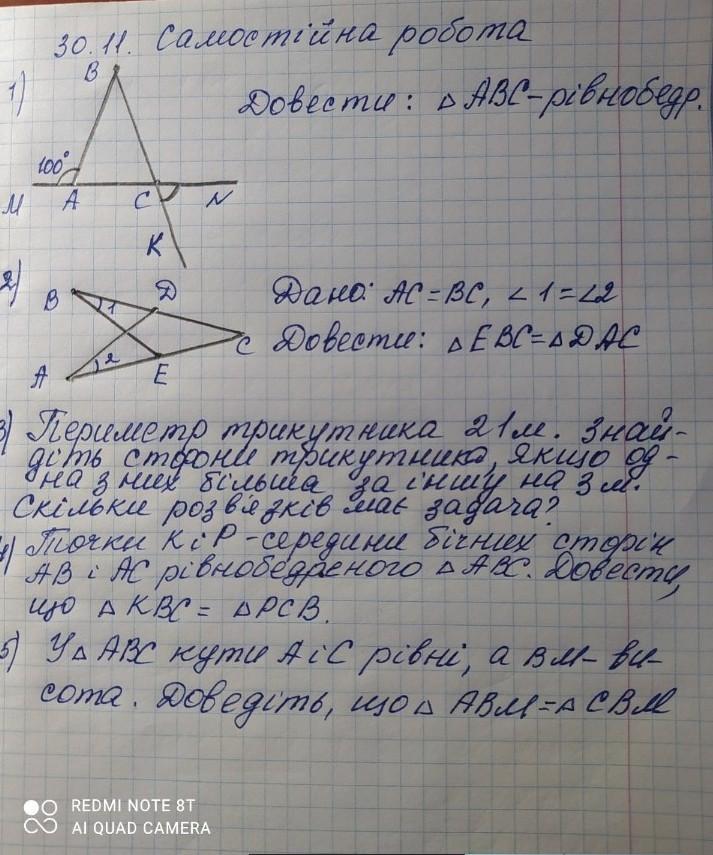 30.11. Самостійна робота
1)
B
Довести: △ABC-рівнобедр.
100°
M A C N
K
2)
B 1 D
Дано: AC=BC, ∠1=∠2
Довести: △EBC=△DAC
A 2 E C
3) Периметр трикутника 21м. Знай-
діть сторони трикутника, якщо од-
на з них більша за іншу на 3м.
Скільки розв'язків має задача?
4) Точки K і P-середини бічних сторін
AB і AC рівнобедреного △ABC. Довести,
що △KBC= △PCB.
5) У△ABC кути A і C рівні, а BM- ви-
сота. Доведіть, що△ ABM=△CBM
REDMI NOTE 8T
AI QUAD CAMERA